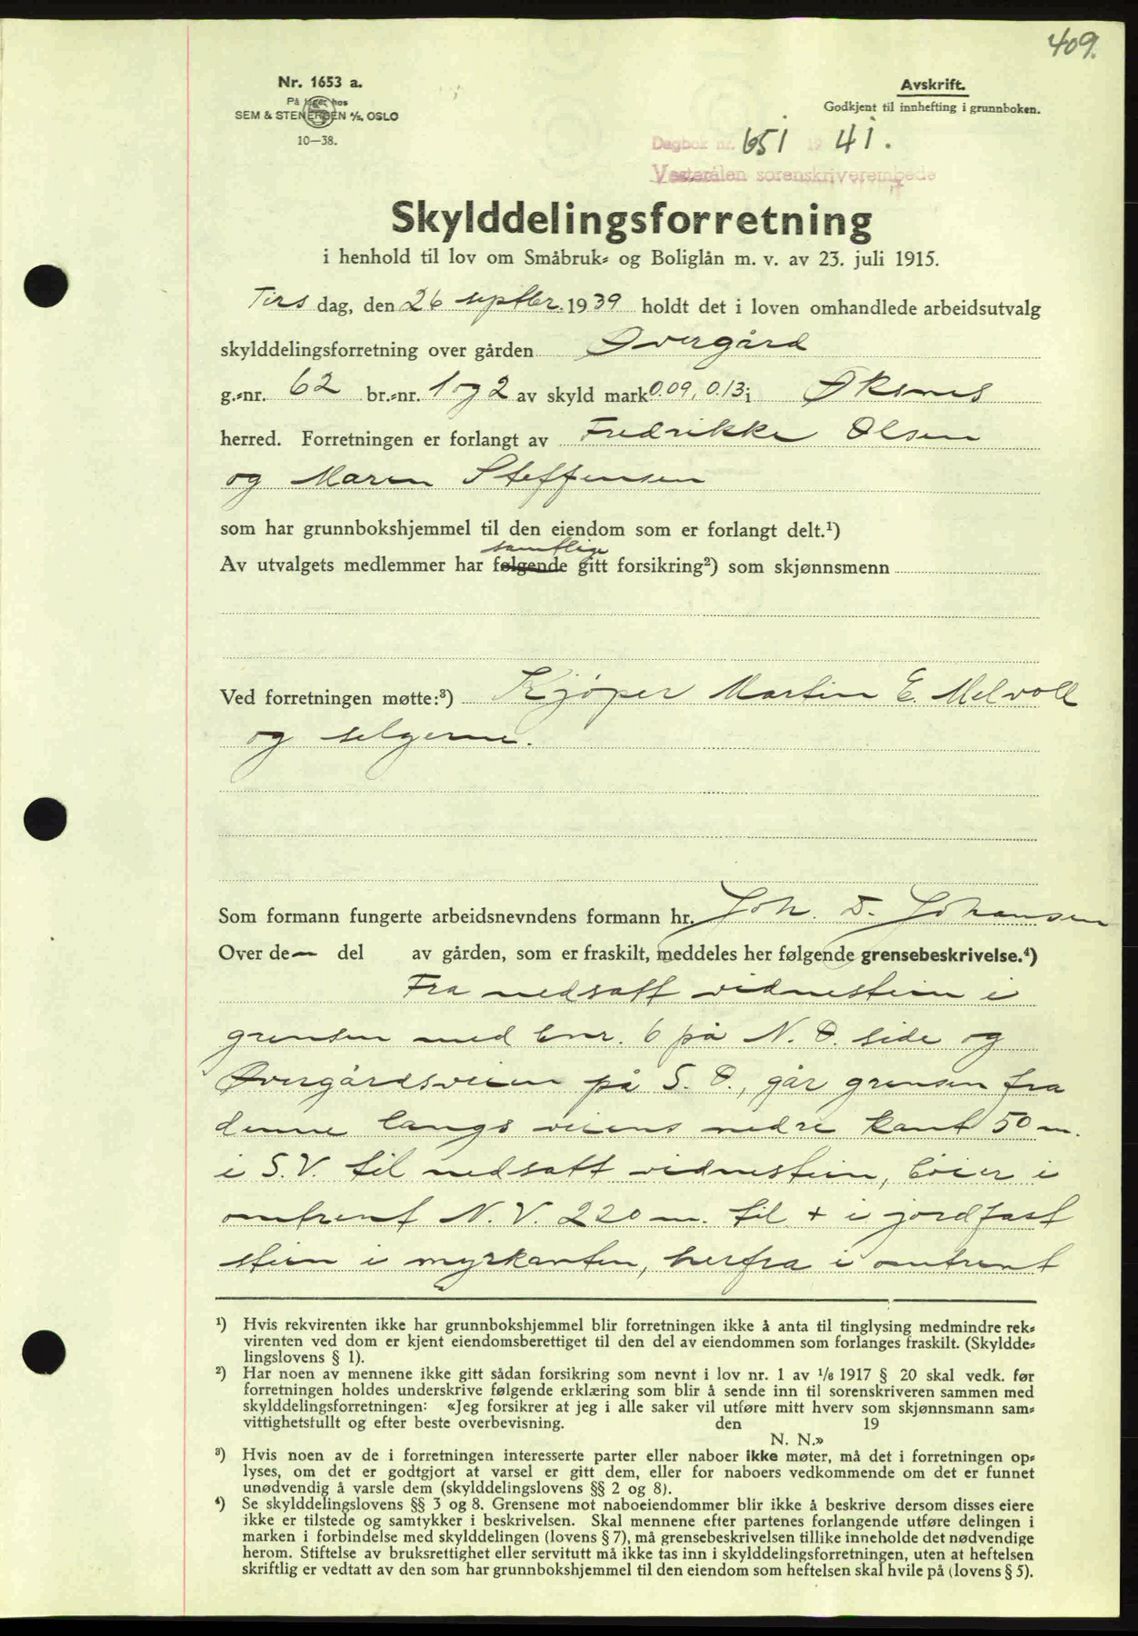 409.
Nr. 1653 a.
På lager hos
SEM & STENERSEN A/S, OSLO
10—38.
Avskrift.
Godkjent til innhefting i grunnboken.
Dagbok nr. 651 19 41.
Vesterålen sorenskriverembede
Skylddelingsforretning
i henhold til lov om Småbruk- og Boliglån m. v. av 23. juli 1915.
Tirs dag, den 26 septbr. 1939 holdt det i loven omhandlede arbeidsutvalg
skylddelingsforretning over gården Øvergård
g.-nr. 62 br.-nr. 1 og 2 av skyld mark 0.09, 0.13 i Øksnes
herred. Forretningen er forlangt av Fredrikke Olsen
og Maren Steffensen
som har grunnbokshjemmel til den eiendom som er forlangt delt.¹)
samtlige
Av utvalgets medlemmer har følgende gitt forsikring²) som skjønnsmenn
Ved forretningen møtte:³) Kjøper Martin E. Melvoll
og selgerne.
Som formann fungerte arbeidsnevndens formann hr. Joh. D. Johansen
Over de— del av gården, som er fraskilt, meddeles her følgende grensebeskrivelse.⁴)
Fra nedsatt vidnestein i
grensen med bnr. 6 på N. Ø. side og
Øvergårdsveien på S. Ø., går grensen fra
denne langs veiens nedre kant 50 m.
i S.V. til nedsatt vidnestein, bøier i
omtrent N.V. 220 m. til + i jordfast
stein i myrkanten, herfra i omtrent
¹) Hvis rekvirenten ikke har grunnbokshjemmel blir forretningen ikke å anta til tinglysing medmindre rek-
virenten ved dom er kjent eiendomsberettiget til den del av eiendommen som forlanges fraskilt. (Skyldde-
lingslovens § 1).
²) Har noen av mennene ikke gitt sådan forsikring som nevnt i lov nr. 1 av 1/6 1917 § 20 skal vedk. før
forretningen holdes underskrive følgende erklæring som blir å sende inn til sorenskriveren sammen med
skylddelingsforretningen: «Jeg forsikrer at jeg i alle saker vil utføre mitt hverv som skjønnsmann sam-
vittighetsfullt og efter beste overbevisning. den 19
N. N.»
³) Hvis noen av de i forretningen interesserte parter eller naboer ikke møter, må det i forretningen op-
lyses, om det er godtgjort at varsel er gitt dem, eller for naboers vedkommende om det er funnet
unødvendig å varsle dem (skylddelingslovens §§ 2 og 8).
⁴) Se skylddelingslovens §§ 3 og 8. Grensene mot naboeiendommer blir ikke å beskrive dersom disses eiere
ikke er tilstede og samtykker i beskrivelsen. Skal mennene efter partenes forlangende utføre delingen i
marken i forbindelse med skylddelingen (lovens § 7), må grensebeskrivelsen tillike inneholde det nødvendige
herom. Stiftelse av bruksrettighet eller servitutt må ikke tas inn i skylddelingsforretningen, uten at heftelsen
skriftlig er vedtatt av den som har grunnbokshjemmel til den eiendom som heftelsen skal hvile på (lovens § 5).